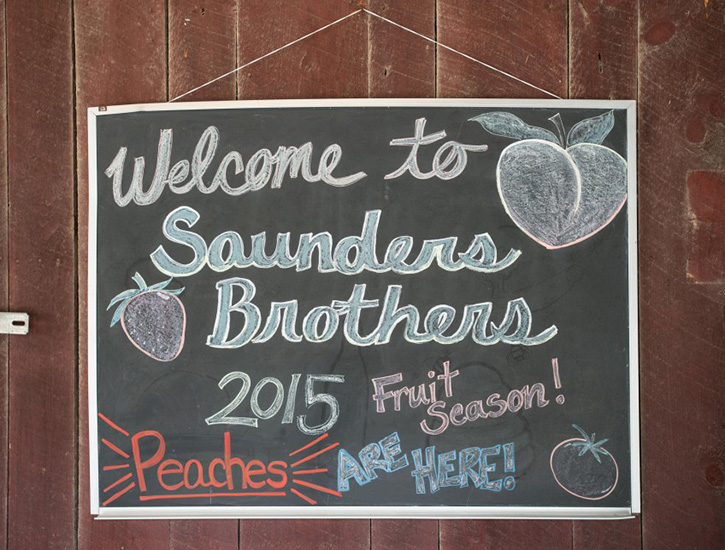 Welcome to
Saunders
Brothers
2015 Fruit Season!
Peaches ARE HERE!